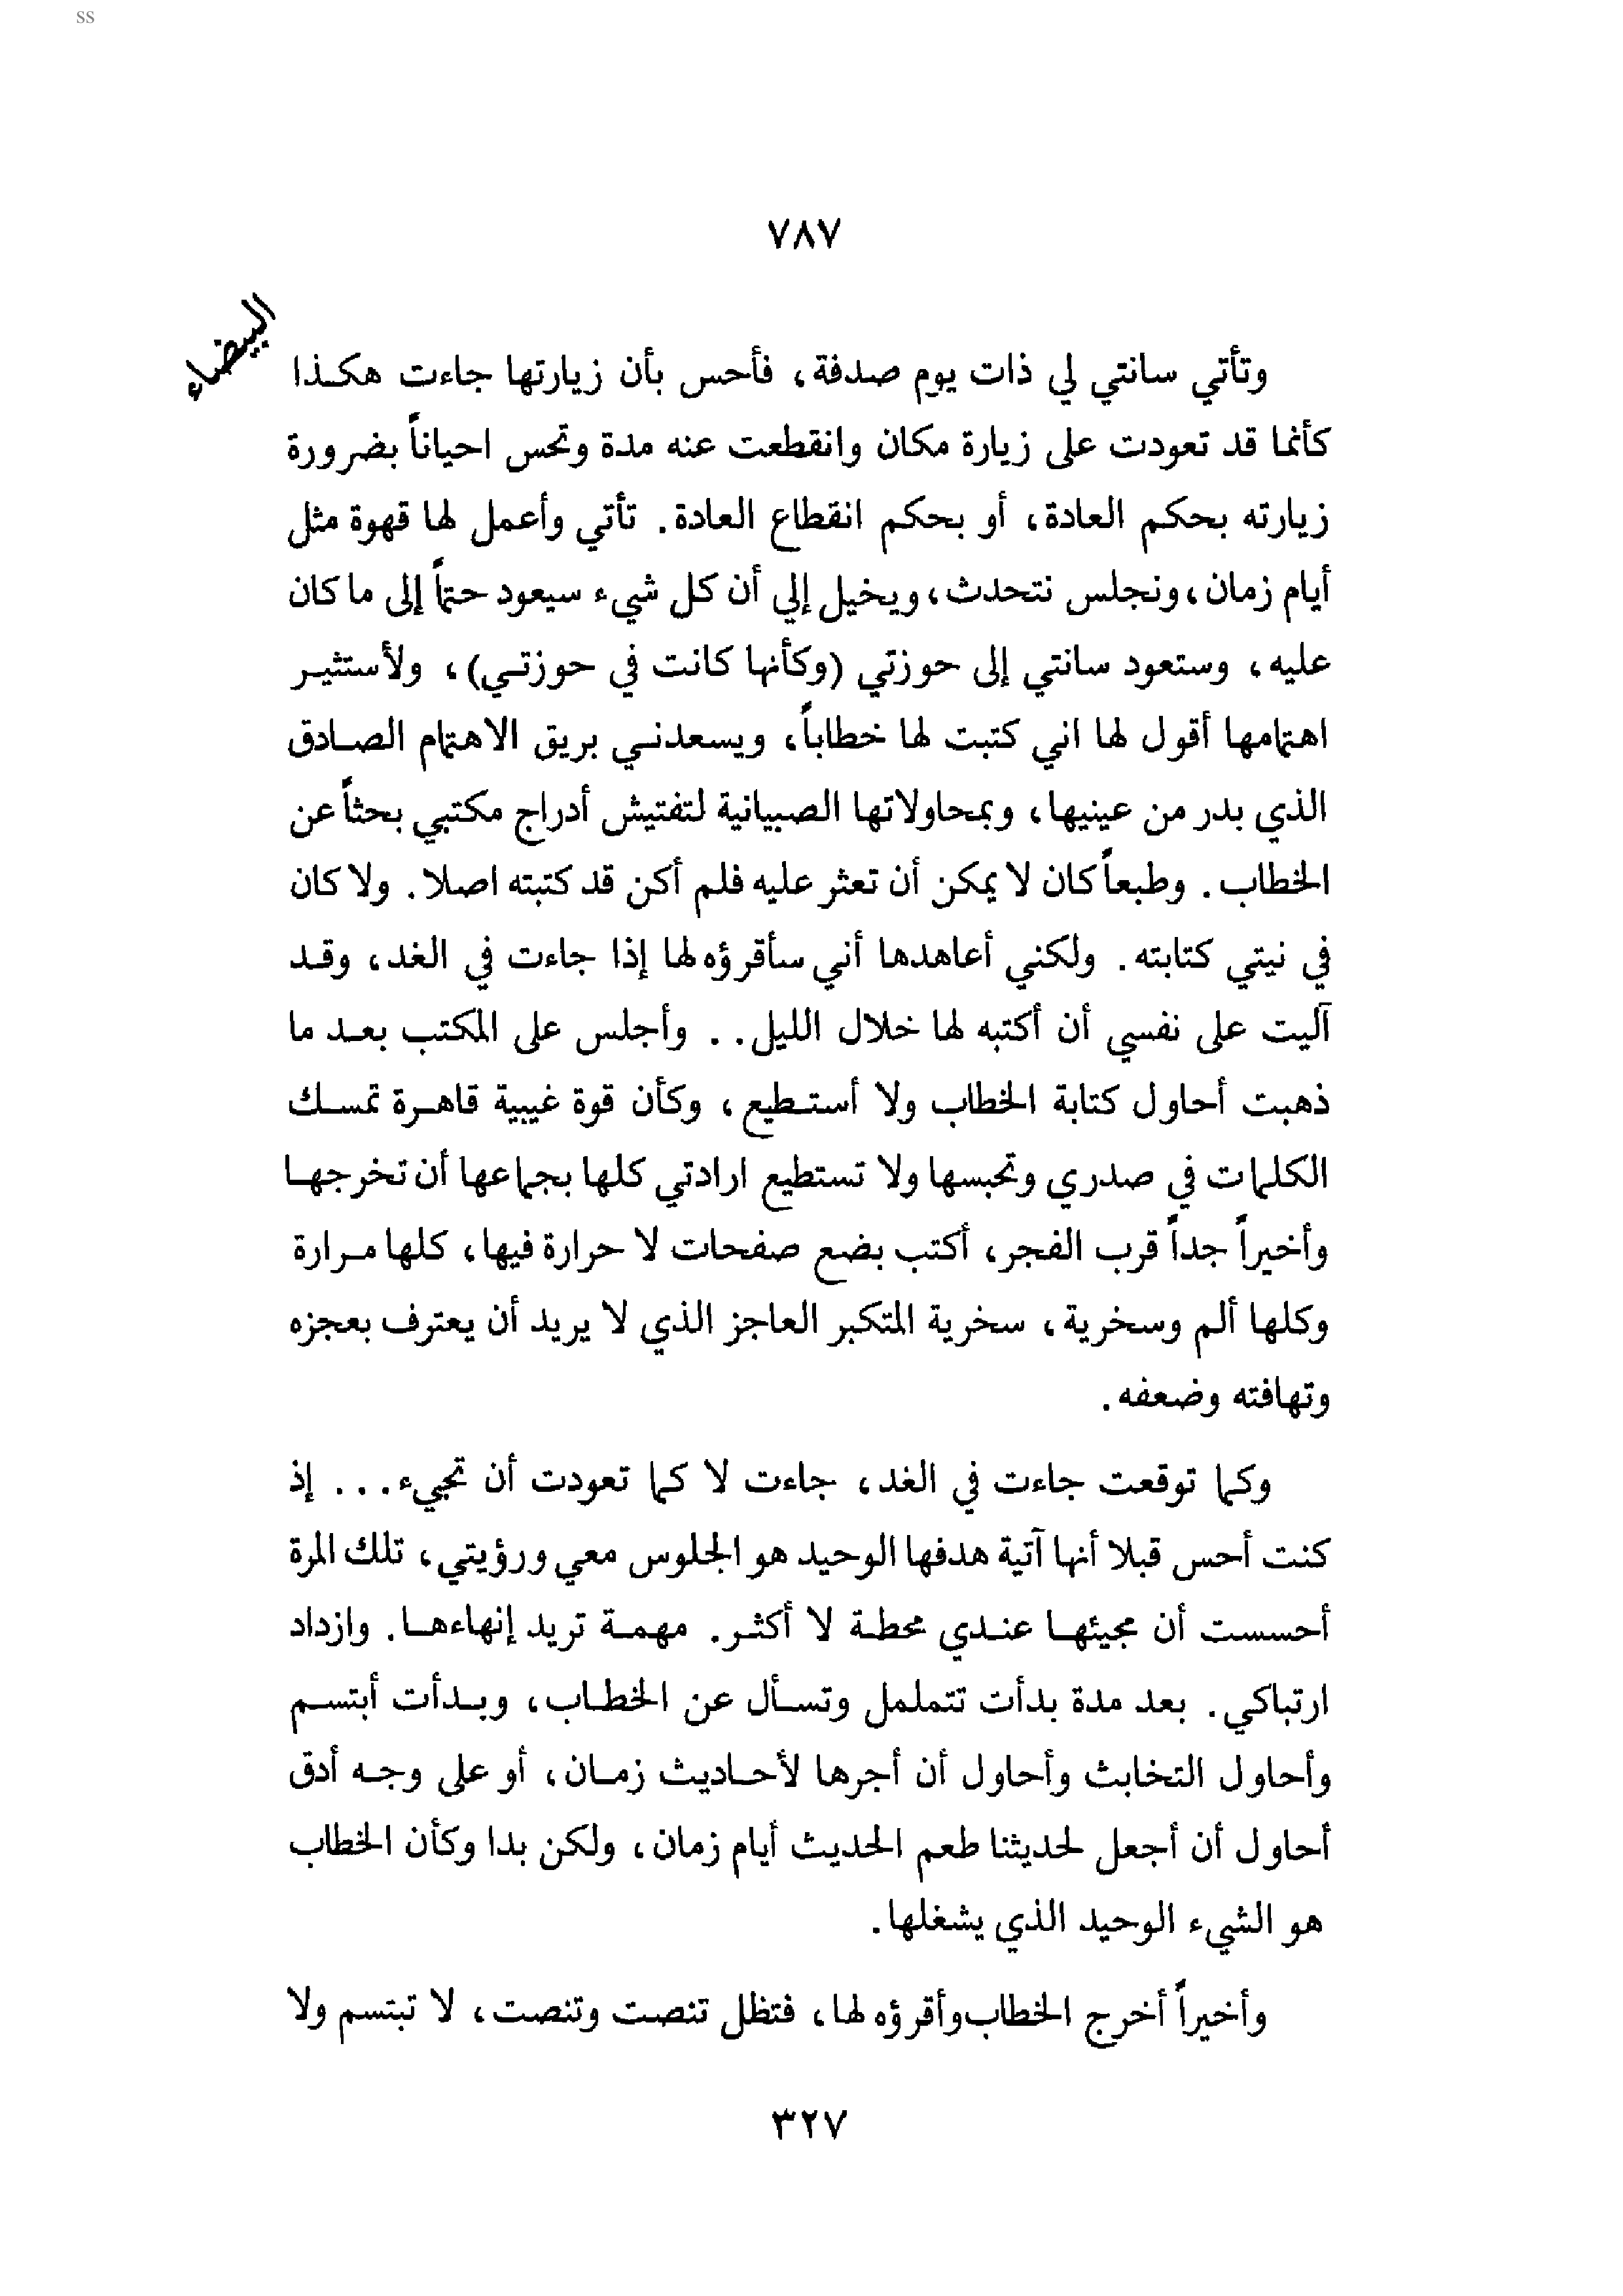 ss
٧٨٧
البيضاء
وتأتي سانتي لي ذات يوم صدفة، فأحس بأن زيارتها جاءت هكذا
كأنما قد تعودت على زيارة مكان وانقطعت عنه مدة وتحس احياناً بضرورة
زيارته بحكم العادة، أو بحكم انقطاع العادة. تأتي وأعمل لها قهوة مثل
أيام زمان، ونجلس نتحدث، ويخيل إلي أن كل شيء سيعود حتماً إلى ما كان
عليه، وستعود سانتي إلى حوزتي (وكأنها كانت في حوزتي)، ولأستثير
اهتمامها أقول لها اني كتبت لها خطاباً، ويسعدني بريق الاهتمام الصادق
الذي بدر من عينيها، وبمحاولاتها الصبيانية لتفتيش أدراج مكتبي بحثاً عن
الخطاب. وطبعاً كان لا يمكن أن تعثر عليه فلم أكن قد كتبته اصلا. ولا كان
في نيتي كتابته. ولكني أعاهدها أني سأقرؤه لها إذا جاءت في الغد، وقد
آليت على نفسي أن أكتبه لها خلال الليل.. وأجلس على المكتب بعد ما
ذهبت أحاول كتابة الخطاب ولا أستطيع، وكأن قوة غيبية قاهرة تمسك
الكلمات في صدري وتحبسها ولا تستطيع ارادتي كلها بجماعها أن تخرجها
وأخيراً جداً قرب الفجر، أكتب بضع صفحات لا حرارة فيها، كلها مرارة
وكلها ألم وسخرية، سخرية المتكبر العاجز الذي لا يريد أن يعترف بعجزه
وتهافته وضعفه.
وكما توقعت جاءت في الغد، جاءت لا كما تعودت أن تجيء... إذ
كنت أحس قبلا أنها آتية هدفها الوحيد هو الجلوس معي ورؤيتي، تلك المرة
أحسست أن مجيئها عندي محطة لا أكثر. مهمة تريد إنهاءها. وازداد
ارتباكي. بعد مدة بدأت تتململ وتسأل عن الخطاب، وبدأت أبتسم
وأحاول التخابث وأحاول أن أجرها لأحاديث زمان، أو على وجه أدق
أحاول أن أجعل لحديثنا طعم الحديث أيام زمان، ولكن بدا وكأن الخطاب
هو الشيء الوحيد الذي يشغلها.
وأخيراً أخرج الخطاب وأقرؤه لها، فتظل تنصت وتنصت، لا تبتسم ولا
٣٢٧